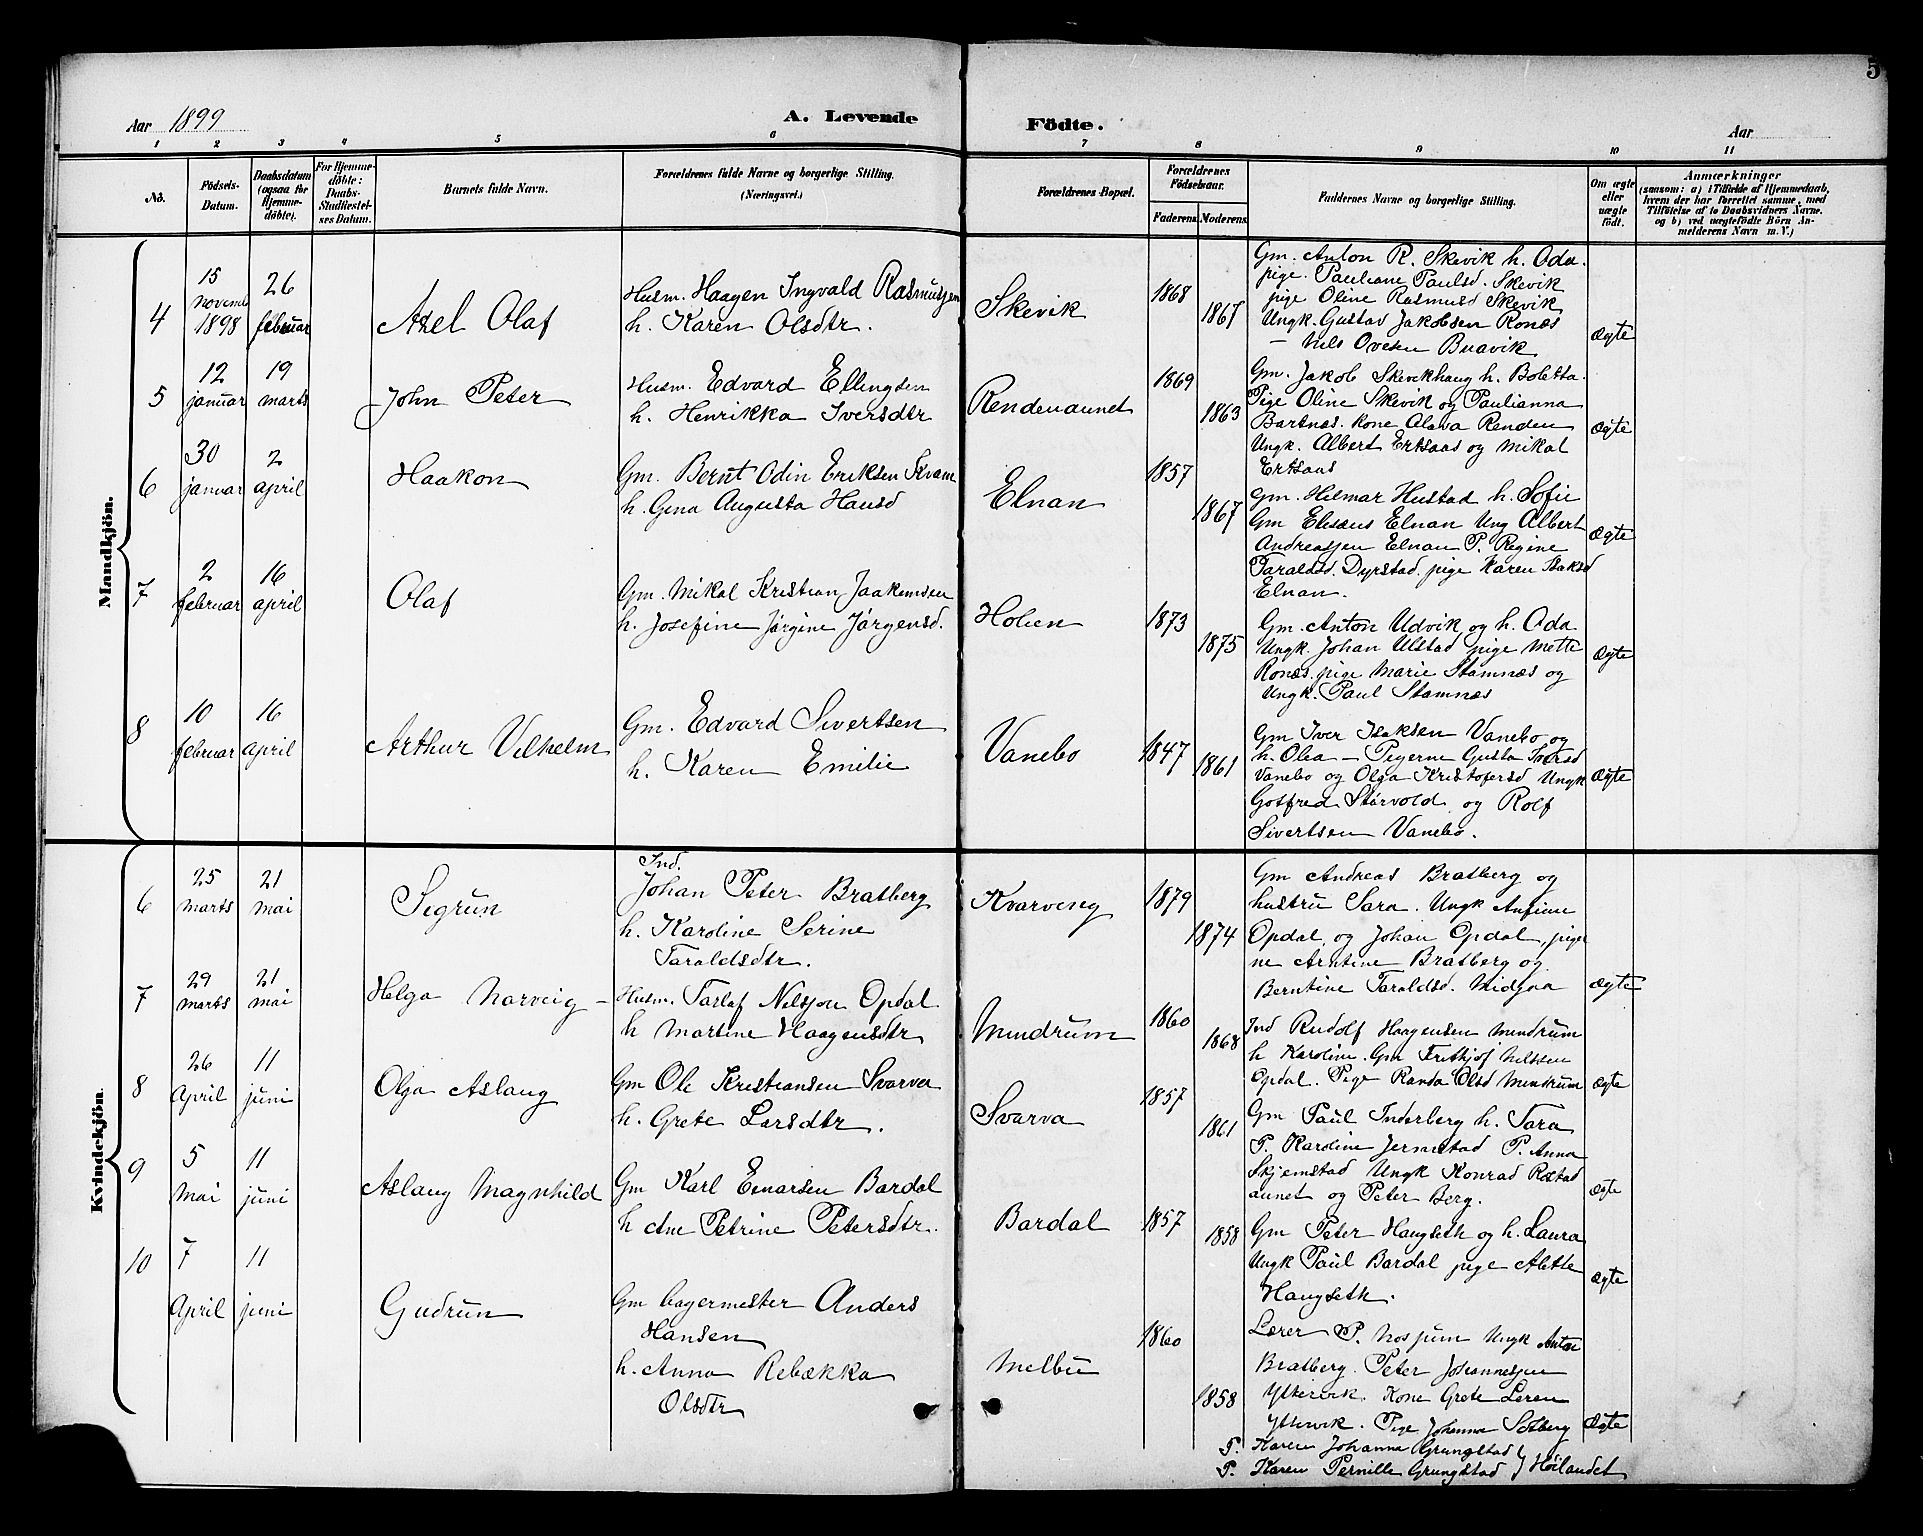 5
Aar 1899
A. Levende
Födte.
Aar
1 2 3 4 5 6 7 8 9 10 11
No.
Födsels-Datum.
Daabsdatum (ogsaa for Hjemmedöbte).
For Hjemmedöbte: Daabs-Stadfæstelses Datum.
Barnets fulde Navn.
Forældrenes fulde Navne og borgerlige Stilling. (Næringsvei.)
Forældrenes Bopæl.
Forældrenes Födselsaar.
Faderens
Moderens
Faddernes Navne og borgerlige Stilling.
Om ægte eller uægte födt.
Anmærkninger
(saasom: a) i Tilfælde af Hjemmedaab, hvem der har forrettet samme, med Tilföielse af to Daabsvidners Navne, og b) ved uægtefödte Börn Anmelderens Navn m. V.)
Mandkjön.
4
15 novemb 1898
26 februar
Axel Olaf
Husm. Haagen Ingvald Rasmussen
h. Karen Olsdtr.
Skevik
1868
1867
Gm. Anton R. Skevik h. Oda.
pige. Pauliane Paulsd. Skevik
pige Oline Rasmusd Skevik
Ungk. Gustav Jakobsen Ronæs
— Nils Ovesen Buavik
Ægte
5
12 januar
19 marts
John Peter
Husm. Edvard Ellingsen
h. Henrikka Iversdtr
Rendenaunet
1869
1863
Gm. Jakob Skevikhaug h. Boletta.
Pige Oline Skevik og Paulianna
Bartnæs. Kone Olava Renden
Ungk. Albert Ertsaas og Mikal
Ertsaas
Ægte
6
30 januar
2 april
Haakon
Gm. Bernt Odin Eriksen Kvam
h. Gina Augusta Hansd
Elnan
1857
1867
Gm. Hilmar Hustad h. Sofie
Gm Elisæus Elnan Ung Albert
Andreassen Elnan P. Regine
Taraldsd. Dyrstad. pige Karen Isaksd
Elnan.
Ægte
7
2 februar
16 april
Olaf
Gm. Mikal Kristian Jaakimsen
h. Josefine Jørgine Jørgensd.
Holien
1873
1875
Gm. Anton Udvik og h. Oda
Ungk. Johan Ulstad pige Mette
Ronæs. pige Marie Stamnæs og
Ungk. Paul Stamnæs
Ægte
8
10 februar
16 april
Arthur Vilhelm
Gm. Edvard Sivertsen
h. Karen Emilie
Vanebo
1847
1861
Gm Iver Isaksen Vanebo og
h. Olea — Pigerne Gusta Iversd
Vanebo og Olga Kristofersd Ungk
Gotfred Størvold og Rolf
Sivertsen Vanebo.
Ægte
Kvindekjön.
6
25 marts
21 mai
Sigrun
Ind.
Johan Peter Bratberg
h. Karoline Serine
Taraldsdtr.
Kvarveng
1879
1874
Gm Andreas Bratberg og
hustru Sara. Ungk Anfinn
Opdal, og Johan Opdal, piger
ne Arntine Bratberg og
Berntine Taraldsd. Midjaa
Ægte
7
29 marts
21 mai
Helga Narveig —
Husm. Tarlaf Nilssen Opdal
h Martine Haagensdtr
Mindrum
1860
1868
Ind Rudolf Haagensen Mindrum
h Karoline. Gm Frithjof Nilssen
Opdal. Pige Randa Olsd Mindrum
Ægte
8
26 April
11 juni
Olga Aslaug
Gm Ole Kristiansen Svarva
h. Grete Larsdtr.
Svarva
1857
1861
Gm Paul Inderberg h. Sara
P. Karoline Jermstad P. Anna
Skjemstad Ungk Konrad Rostad
aunet og Peter Berg.
Ægte
9
5 Mai
11 juni
Aslaug Magnhild
Gm Karl Einarsen Bardal
h Ane Petrine Petersdtr.
Bardal
1857
1858
Gm Peter Haugseth og h. Laura
Ungk Paul Bardal pige Alette
Haugseth.
Ægte
10
7 April
11 juni
Gudrun
Gm bagermester Anders
Hansen
h. Anna Rebækka
Olsdtr
Melbu
1860
1858
Lærer P. Mosjum Ungk Anton
Bratberg. Peter Johannessen
Yttervik. Kone Grete Leren
Yttervik. Pige Johanna Solberg
P. Karen Johanna Grungstad
P. Karen Pernille Grungstad } Høilandet
Ægte